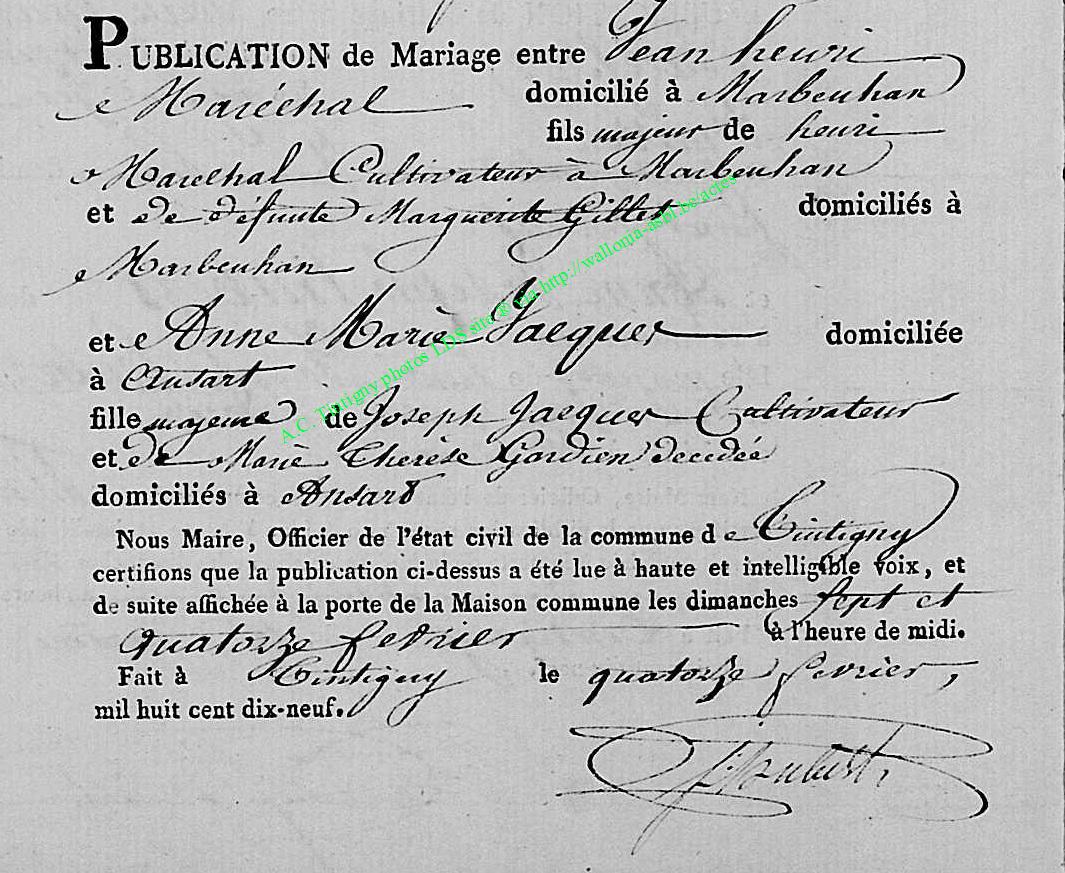 PUBLICATION de Mariage entre Jean henri
Maréchal domicilié à Marbeuhan
fils majeur de henri
Maréchal Cultivateur à Marbeuhan
et de défunte Marguerite Gillet domiciliés à
Marbeuhan
et Anne Marie Jacques domiciliée
à Ansart
fille majeure de Joseph Jacques Cultivateur
et de Marie Therèse Gordien decedée
domiciliés à Ansart
Nous Maire, Officier de l'état civil de la commune de Tintigny
certifions que la publication ci-dessus a été lue à haute et intelligible voix, et
de suite affichée à la porte de la Maison commune les dimanches sept et
quatorze fevrier à l'heure de midi.
Fait à Tintigny le quatorze fevrier,
mil huit cent dix-neuf.
A.C. Tintigny photos LDS site © via http://wallonia-asbl.be/actes